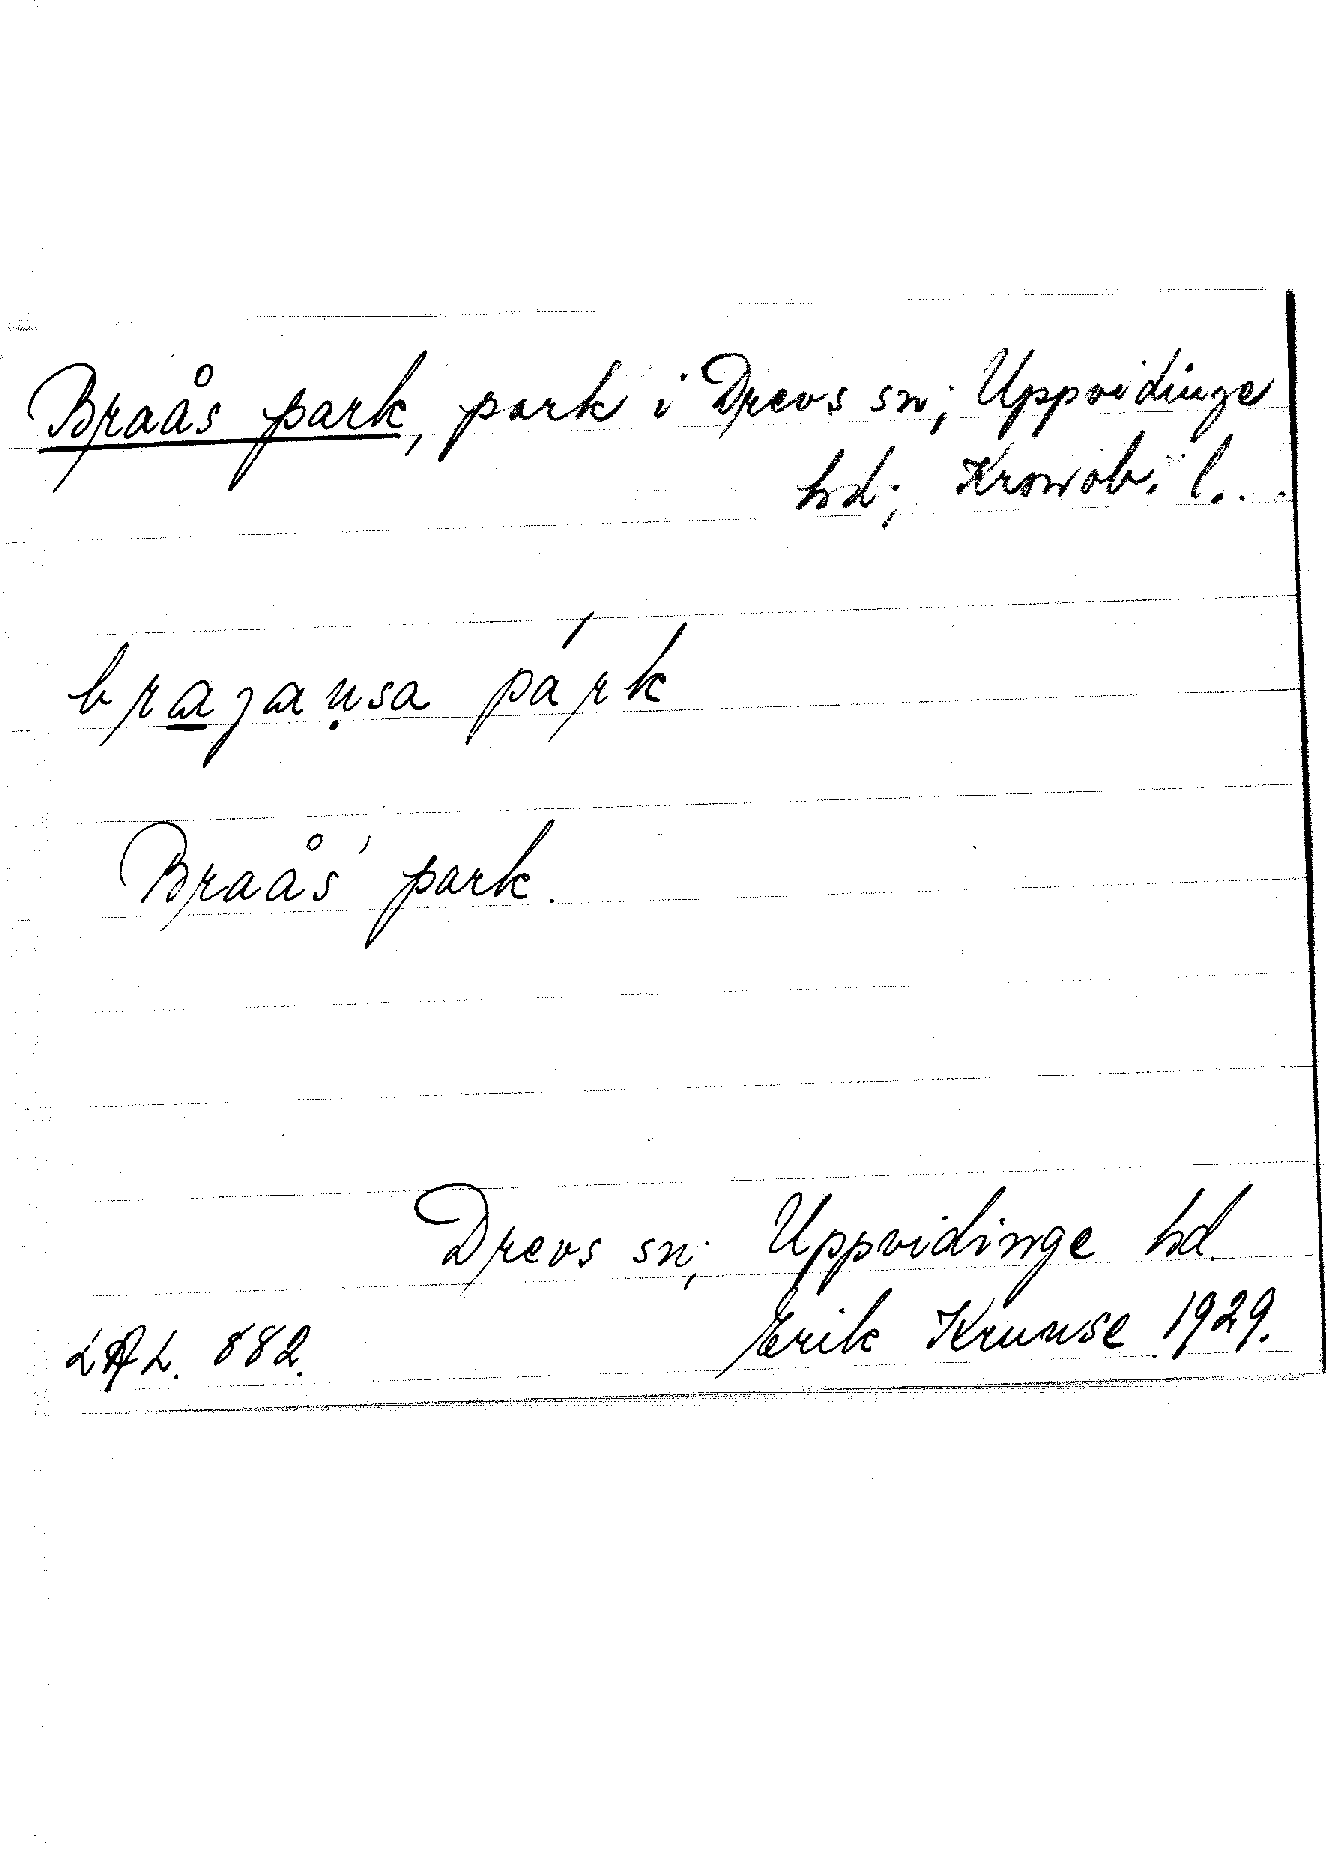 Braås park, park i Drevs sn; Uppvidinge
hd; Kronob. l.
brajansa párk
Braås' park.
Drevs sn; Uppvidinge hd.
LAL. 882. Erik Kruuse 1929.